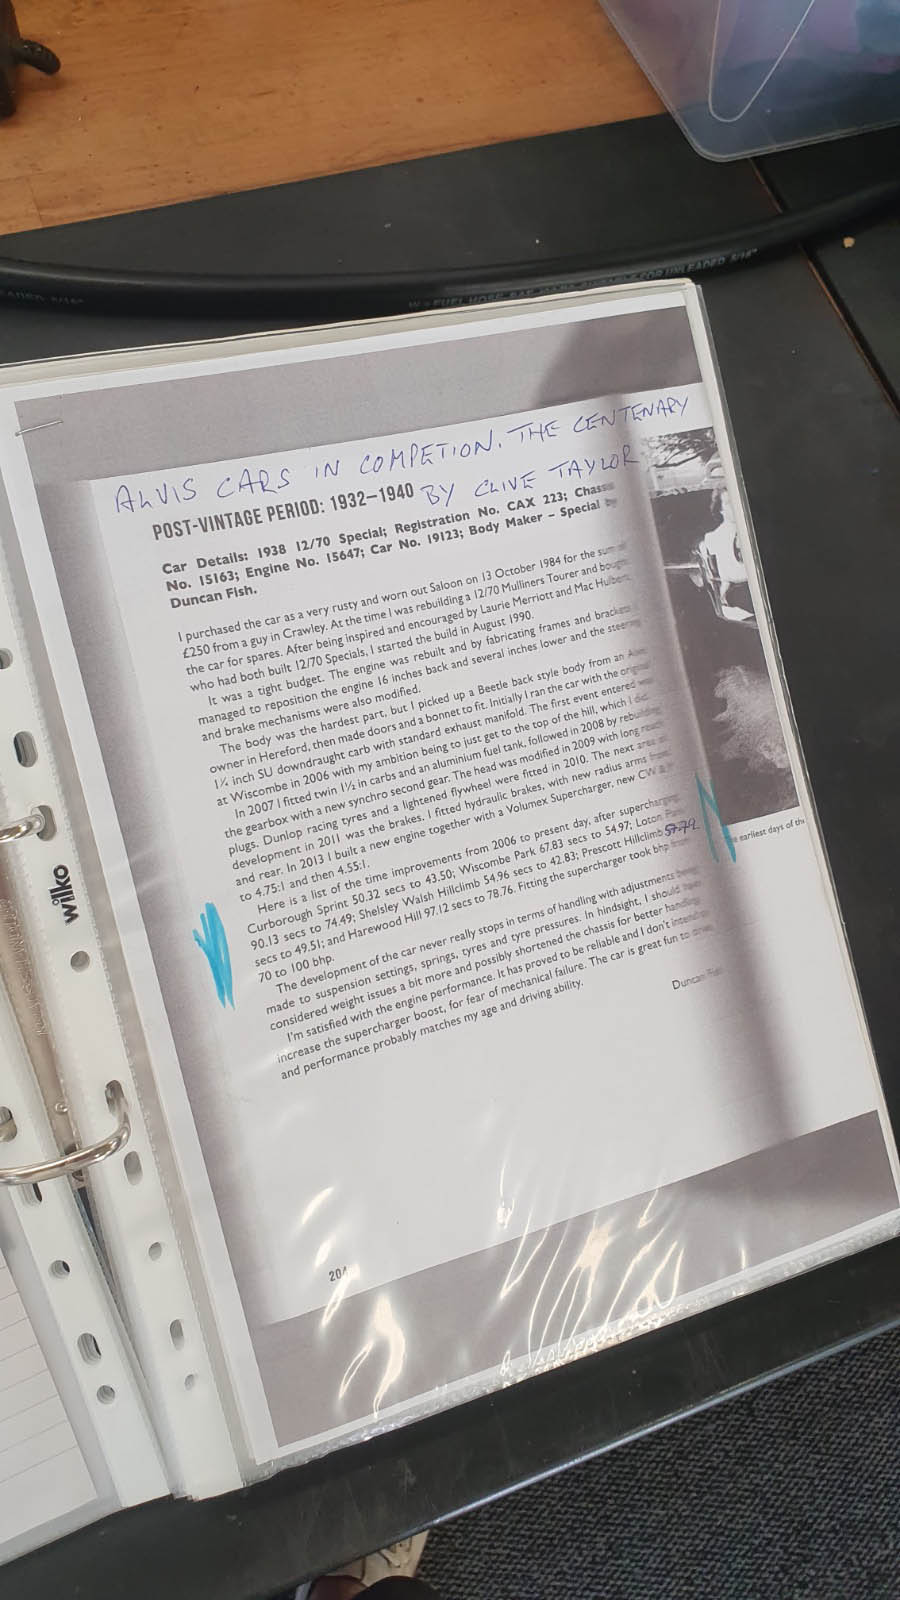 W.P FUEL HOSE SAE
FOR UNLEADED 5/16"
ALVIS CARS IN COMPETION. THE CENTENARY
BY CLIVE TAYLOR
POST-VINTAGE PERIOD: 1932–1940
Car Details: 1938 12/70 Special; Registration No. CAX 223; Chassis
No. 15163; Engine No. 15647; Car No. 19123; Body Maker – Special by
Duncan Fish.
I purchased the car as a very rusty and worn out Saloon on 13 October 1984 for the sum of
£250 from a guy in Crawley. At the time I was rebuilding a 12/70 Mulliners Tourer and bought
the car for spares. After being inspired and encouraged by Laurie Merriott and Mac Hulbert,
who had both built 12/70 Specials, I started the build in August 1990.
It was a tight budget. The engine was rebuilt and by fabricating frames and brackets
managed to reposition the engine 16 inches back and several inches lower and the steering
and brake mechanisms were also modified.
The body was the hardest part, but I picked up a Beetle back style body from an Alvis
owner in Hereford, then made doors and a bonnet to fit. Initially I ran the car with the original
1¼ inch SU downdraught carb with standard exhaust manifold. The first event entered was
at Wiscombe in 2006 with my ambition being to just get to the top of the hill, which I did.
In 2007 I fitted twin 1½ in carbs and an aluminium fuel tank, followed in 2008 by rebuilding
the gearbox with a new synchro second gear. The head was modified in 2009 with long reach
plugs. Dunlop racing tyres and a lightened flywheel were fitted in 2010. The next area of
development in 2011 was the brakes. I fitted hydraulic brakes, with new radius arms front
and rear. In 2013 I built a new engine together with a Volumex Supercharger, new CW &
to 4.75:1 and then 4.55:1.
Here is a list of the time improvements from 2006 to present day, after supercharging:
Curborough Sprint 50.32 secs to 43.50; Wiscombe Park 67.83 secs to 54.97; Loton Park
90.13 secs to 74.49; Shelsley Walsh Hillclimb 54.96 secs to 42.83; Prescott Hillclimb 57.79
secs to 49.51; and Harewood Hill 97.12 secs to 78.76. Fitting the supercharger took bhp from
70 to 100 bhp.
The development of the car never really stops in terms of handling with adjustments being
made to suspension settings, springs, tyres and tyre pressures. In hindsight, I should have
considered weight issues a bit more and possibly shortened the chassis for better handling.
I'm satisfied with the engine performance. It has proved to be reliable and I don't intend to
increase the supercharger boost, for fear of mechanical failure. The car is great fun to drive
and performance probably matches my age and driving ability.
Duncan Fish
earliest days of the
204
wilko